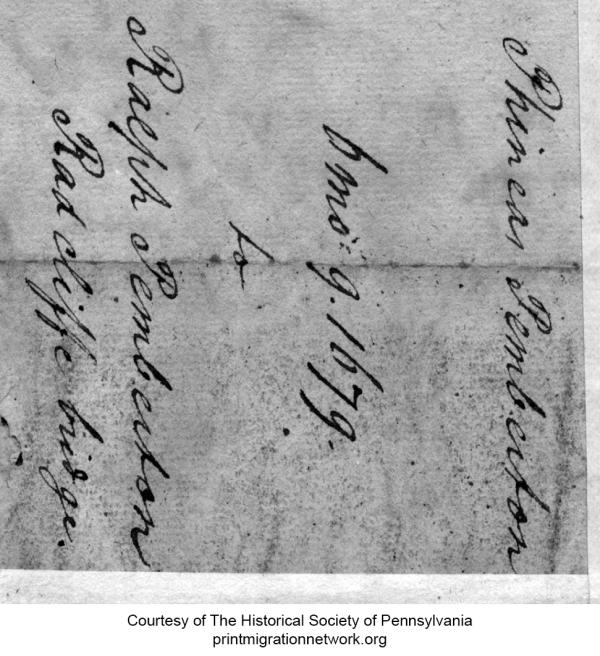 Phineas Pemberton
6 mo: 9. 1679.
to
Ralph Pemberton
Radcliffe bridge.
Courtesy of The Historical Society of Pennsylvania
printmigrationnetwork.org